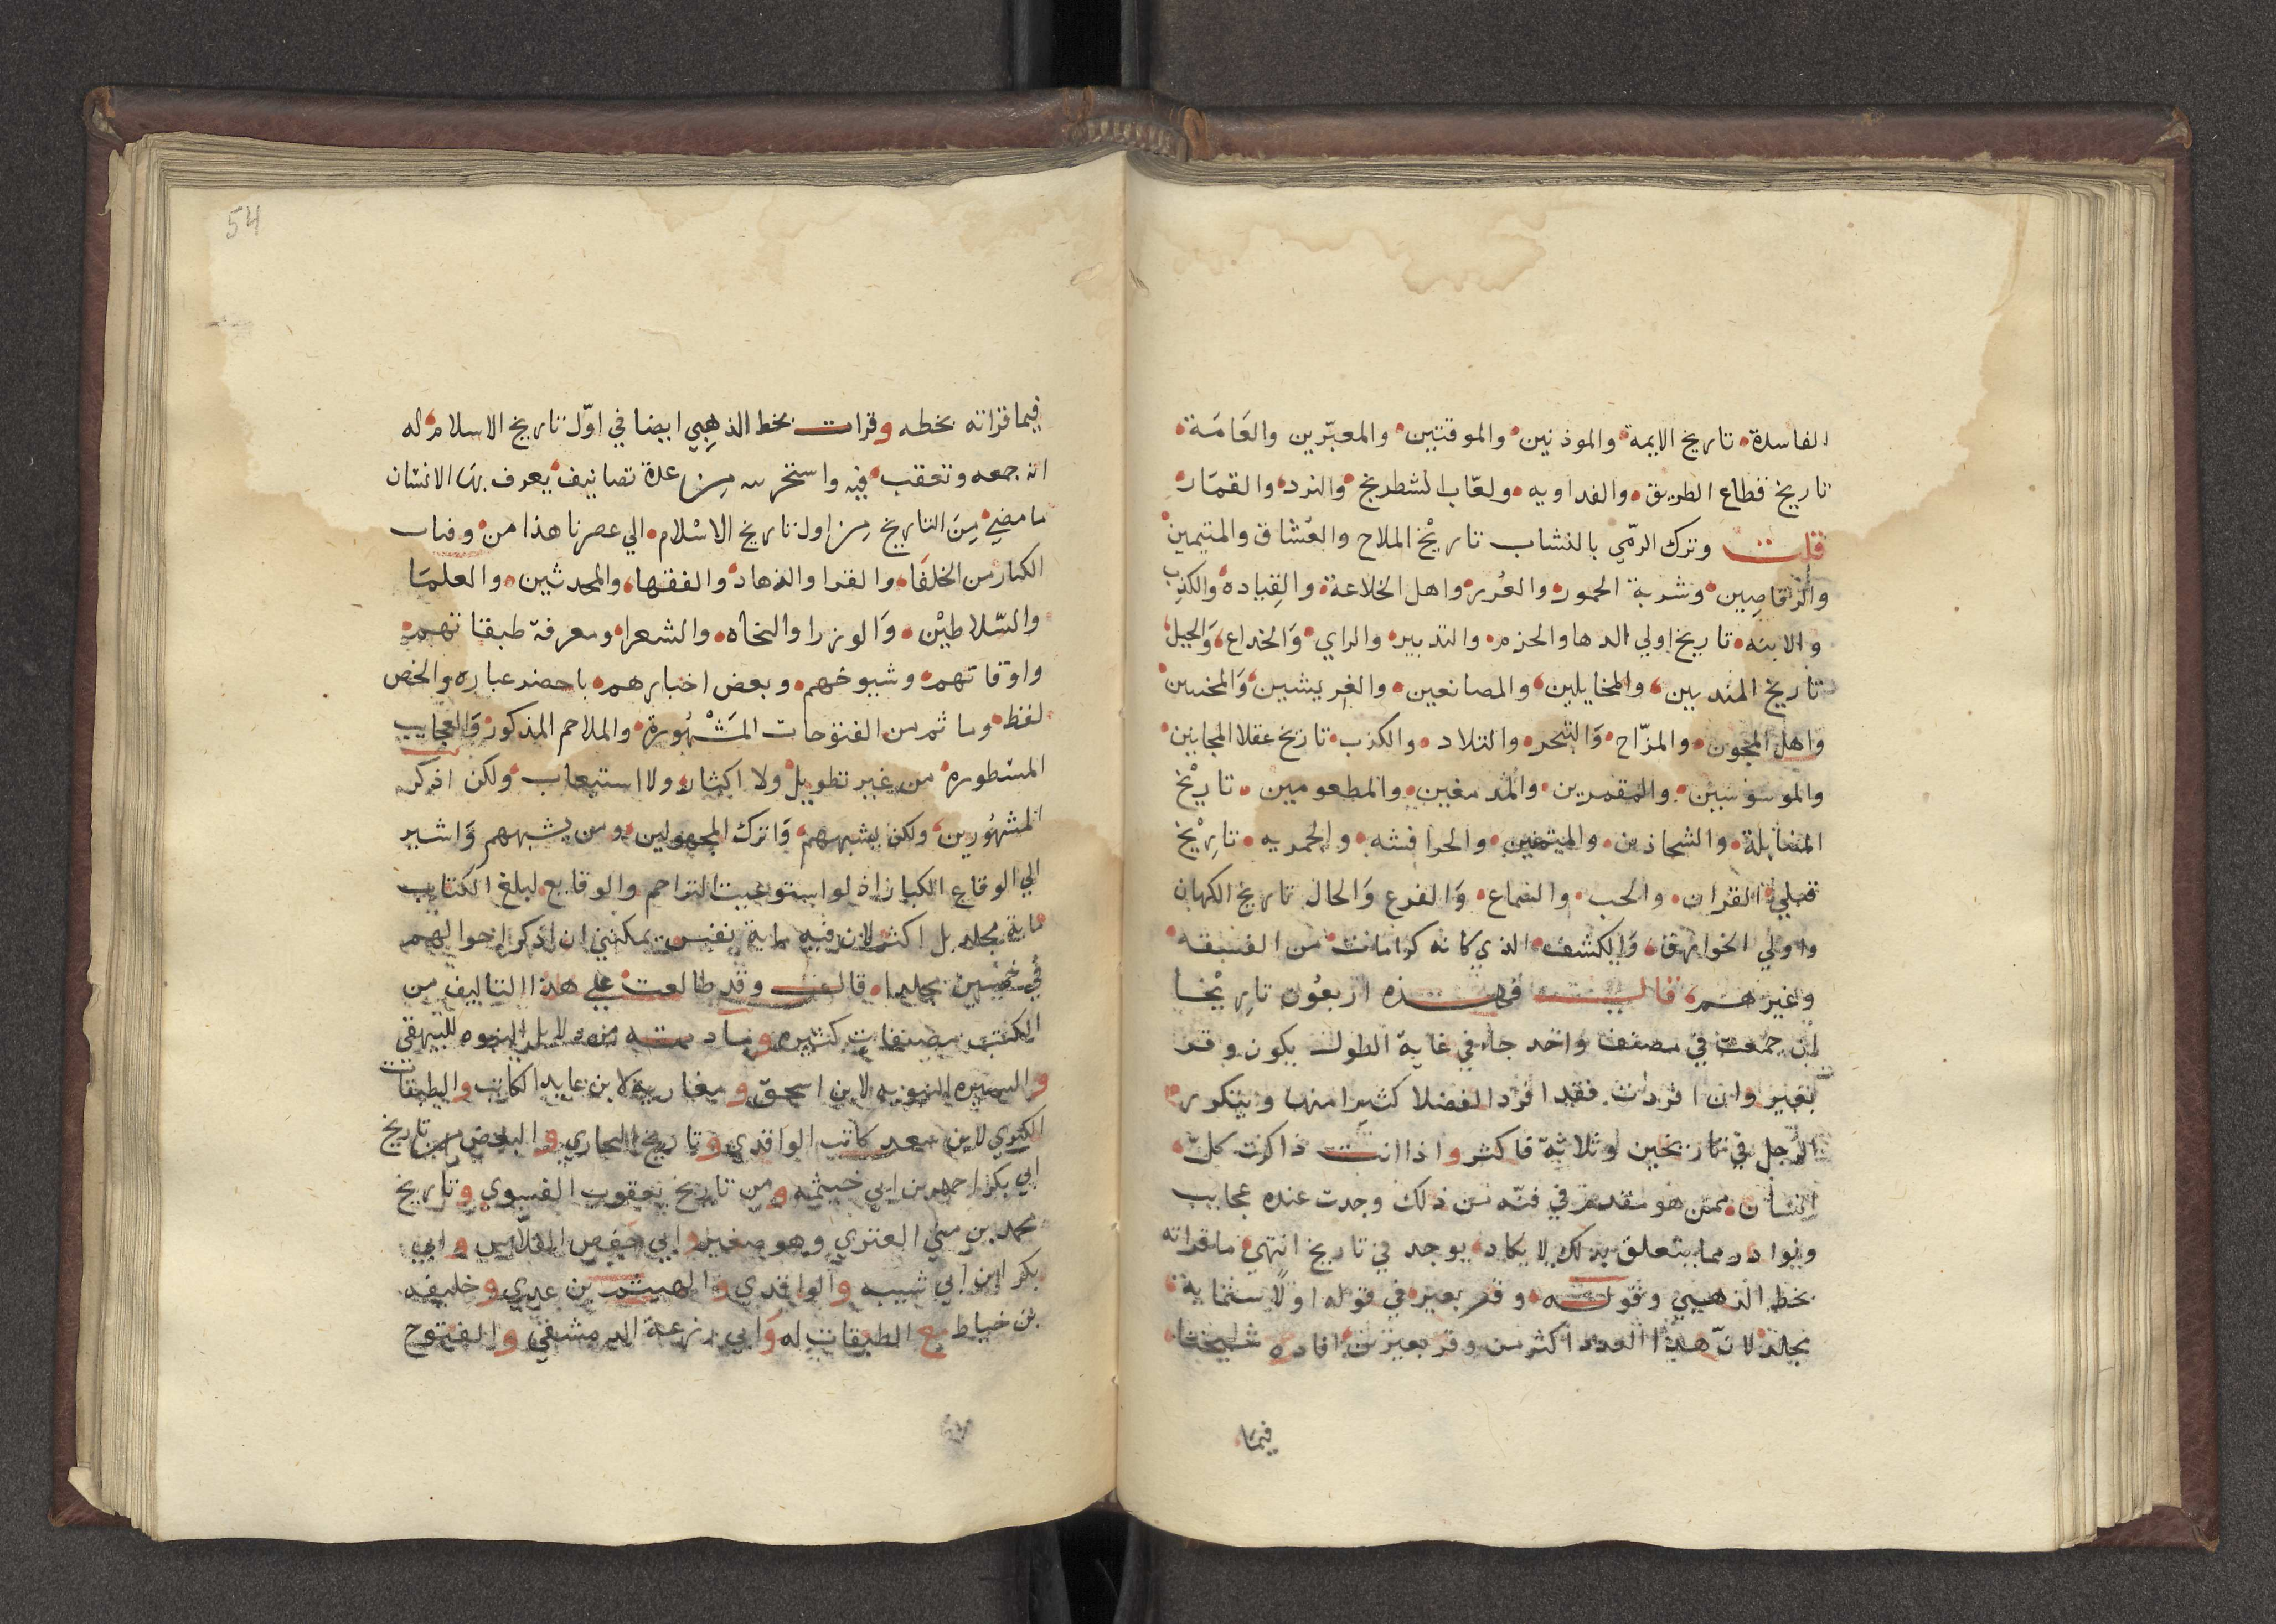 الفاسدة تاريخ الايمة والموذنين والموقتين والمعبّرين والعَامَة
تاريخ قطاع الطريق والفداويه ولعّاب الشطرنج والنرد والقمَار
قلت وترك الرمّي بالنشاب تاريْخ الملاح والعُشاق والمتيمين
والرقاصِين وشربة الخمور والعُرر واهل الخلاعة والقِيادة والكذِب
والابنه تاريخ اولي الدها والحزم والتدبير والراي وَالخداع وَالحيل
تاريخ المندبين والمخايلين والمصانعين والغريشين وَالمخنثين
واهل المجون والمزّاح وَالتجر والتلاد والكذب تاريخ عقلا المجانين
والموسوَسِين والمقمرين والمدمغين والمطعومين تاريْخ
والشحاذين والمتمنين والحرافشه والجمريه تاريْخ
قتلي القران والحب والسماع وَالفزع وَالحال تاريخ الكهان
واولي الخوارق وَالكشف الذي كانه كرامات من الفسقه
وغيرهم قالت فهذه اربعُون تاريْخا
اِن جمعت في مصنف واحد جاء في غاية الطول يكون وقر
بعير وان افردت فقد افرد الفضلا كثيرا منها ويتكرر
الرّجل في تاريخين وثلاثة فاكثر واذا انت ذاكرت كلّ
انسان ممن هو مقدم في فنّه من ذلك وجدت عنده عجايب
ونوادر مما يتعلق بذلك لا يكاد يوجد في تاريخ انتهي ما قراته
بخط الذهبي وقوله وقر بعير في قوله اولًا ستماية
مجلد لانّ هذا العدد اكثر من وقر بعيرين افاده شيخنا
فيما
54
فيما قراته بخطه وقرات بخط الذهبِي ايضا في اوّل تاريخ الاسلام له
انه جمعه وتعقب فيه واستخرجه من عدة تصانيف يعرف بهَا الانسَان
ما مضي مِنَ التاريخ مِن اول تاريخ الاسْلام الي عصرنا هذا من وفيات
الكبار من الخلفَا والقرا والزهاد والفقها والمحدثين والعلمَا
والسّلاطيْن وَالوزرا والنحاه والشعرا ومعرفة طبقاتهم
واوقاتهم وشيوخهم وبعض اخبارهم باحضر عباره والخص
لفظ وما تم من الفتوحات المَشْهُورة والملاحم المذكور وَالعجايب
المسْطورة من غير تطويل ولا اكثار ولا استيعاب ولكن اذكر
المشهُورين ولكن يشبههم وَاترك المجهولين ومن يشبههم وَاشير
الي الوقايع الكبار اذ لو استوعبت التراجم والوقايع لبلغ الكتاب
ماية مجلد بل اكثر لان فيه ماية نفس يمكنني ان اذكر احوالهم
في خمسِين مجلدا قال وقد طالعت علي هذا التاليف من
الكتب مصنفات كثيره ومادته من دلايل النبوه للبيهقي
والسيره النبويه لابن اسحق ومغازيه لابن عايد الكاتب والطبقات
الكبري لابن سعد كاتب الواقدي وتاريخ البخاري والبعض من تاريخ
ابي بكر احمد بن ابي خيثمه ومن تاريخ يعقوب الفسوي وتاريخ
محمد بن مثني العنزي وهو صغير وابي حفص الفلاس وابي
بكر ابن ابي شيبه والواقدي والهيثم بن عدي وخليفه
بن خياط مع الطبقات له وَابي زرعة الدمشقي والفتوح